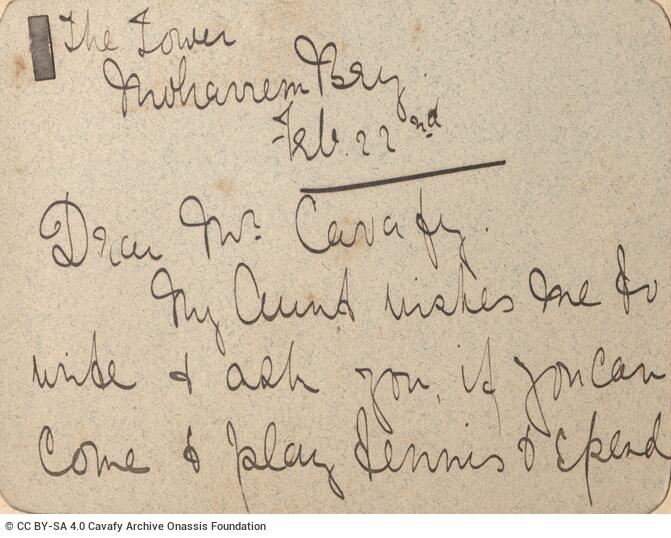 The Tower
Moharrem Bey.
Feb. 22nd
Dear Mr. Cavafy.
My Aunt wishes me to
write & ask you, if you can
come & play tennis & spend
© CC BY-SA 4.0 Cavafy Archive Onassis Foundation